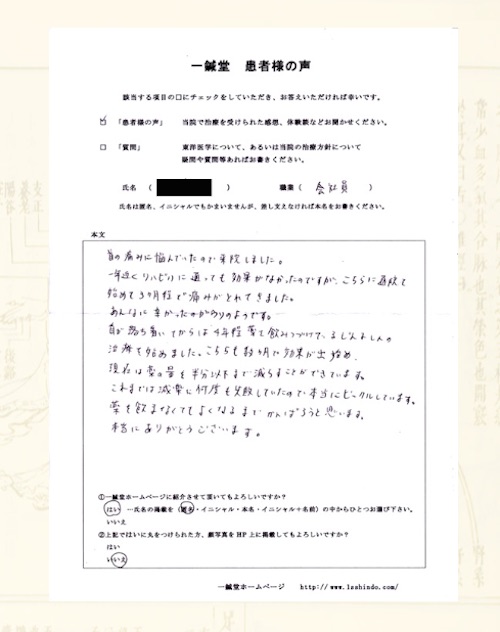 一鍼堂 患者様の声
該当する項目の口にチェックをしていただき、お答えいただければ幸いです。
☑ 「患者様の声」 当院で治療を受けられた感想、体験談などお聞かせください。
□ 「質問」 東洋医学について、あるいは当院の治療方針について
疑問や質問等あればお書きください。
氏名 ( ) 職業 ( 会社員 )
氏名は匿名、イニシャルでもかまいませんが、差し支えなければ本名をお書きください。
本文
首の痛みに悩んでいたので来院しました。
一年近くリハビリに通っても効果がなかったのですが、こちらに通院して
始めて3ヶ月程で痛みがとれてきました。
あんなに辛かったのがうそのようです。
首が落ち着いてからは4年程薬を飲みつづけている
治療を始めました。こちらも数ヶ月で効果が出始め、
現在は薬の量を半分以下まで減らすことができています。
これまでは減薬に何度も失敗していたので本当にビックリしています。
薬を飲まなくてもよくなるまでがんばろうと思います。
本当にありがとうございます。
①一鍼堂ホームページに紹介させて頂いてもよろしいですか?
はい …氏名の掲載を(匿名・イニシャル・本名・イニシャル+名前)の中からひとつお選び下さい。
いいえ
②上記ではいに丸をつけられた方、顔写真をHP上に掲載してもよろしいですか?
はい
いいえ
一鍼堂ホームページ http://www.1sshindo.com/